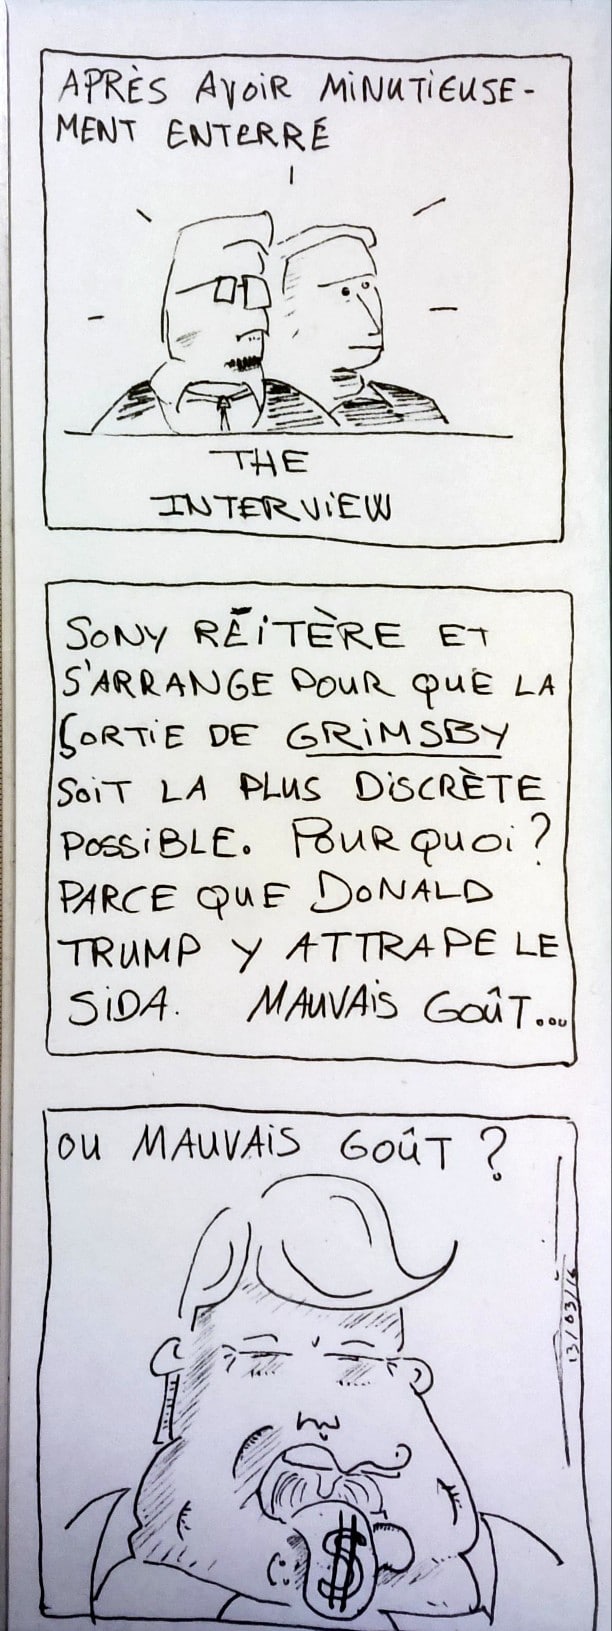 APRÈS AVOIR MINUTIEUSE-
MENT ENTERRÉ
THE
INTERVIEW
SONY RÉITÈRE ET
S'ARRANGE POUR QUE LA
SORTIE DE GRIMSBY
SOIT LA PLUS DISCRÈTE
POSSIBLE. POURQUOI?
PARCE QUE DONALD
TRUMP Y ATTRAPE LE
SIDA. MAUVAIS GOÛT...
OU MAUVAIS GOÛT ?
13/03/16
$